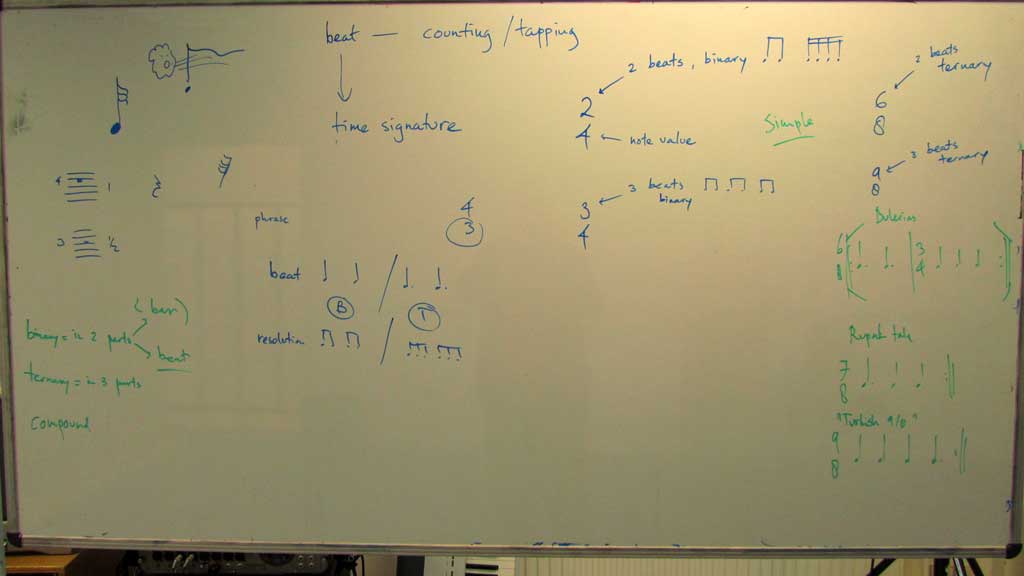 beat — counting / tapping
time signature
2 beats, binary
2
4
note value
Simple
2 beats
ternary
6
8
3 beats
ternary
9
8
3 beats
binary
3
4
4
3
phrase
beat
B
T
resolution
4
1
2
1/2
(bar)
binary = in 2 parts
beat
ternary = in 3 parts
compound
Bulerias
6
8
3
4
Rupak tala
7
8
"Turkish 9/8"
9
8